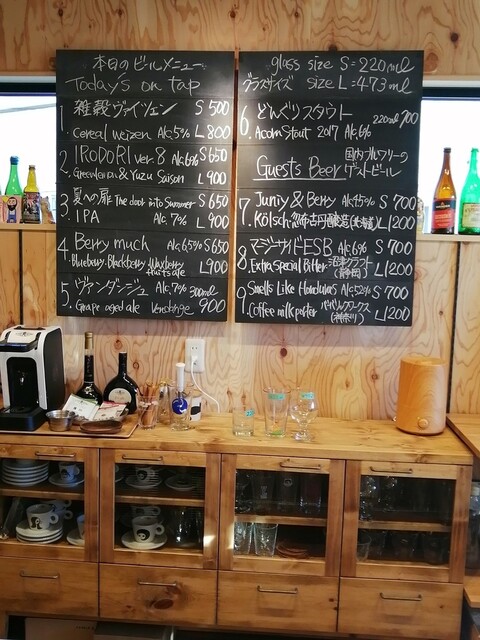 本日のビールメニュー
Today's on tap
1. 雑穀ヴァイツェン S 500
Cereal weizen Alc5% L 800
2. IRODORI ver.8 Alc6% S 650
Greentea & Yuzu Saison L 900
3. 夏への扉 The door into Summer S 650
IPA Alc7% L 900
4. Berry much Alc6.5% S 650
Blueberry・Blackberry L 900
5. ヴァンダンジュ Alc7% 300ml
Grape aged ale Vendange 900
glass size S=220ml
グラスサイズ size L=473ml
6. どんぐりスタウト 220ml 700
Acorn Stout 2017 Alc6%
Guests Beer 国内ブルワリーの
ゲストビール
7. Juniy & Berry Alc4.5% S 700
Kölsch L 1200
8. マジーサイドESB Alc6% S 700
Extra Special Bitter 沼津クラフト (静岡) L 1200
9. Smells Like Honduras Alc5.2% S 700
Coffee milk porter (神奈川) L 1200